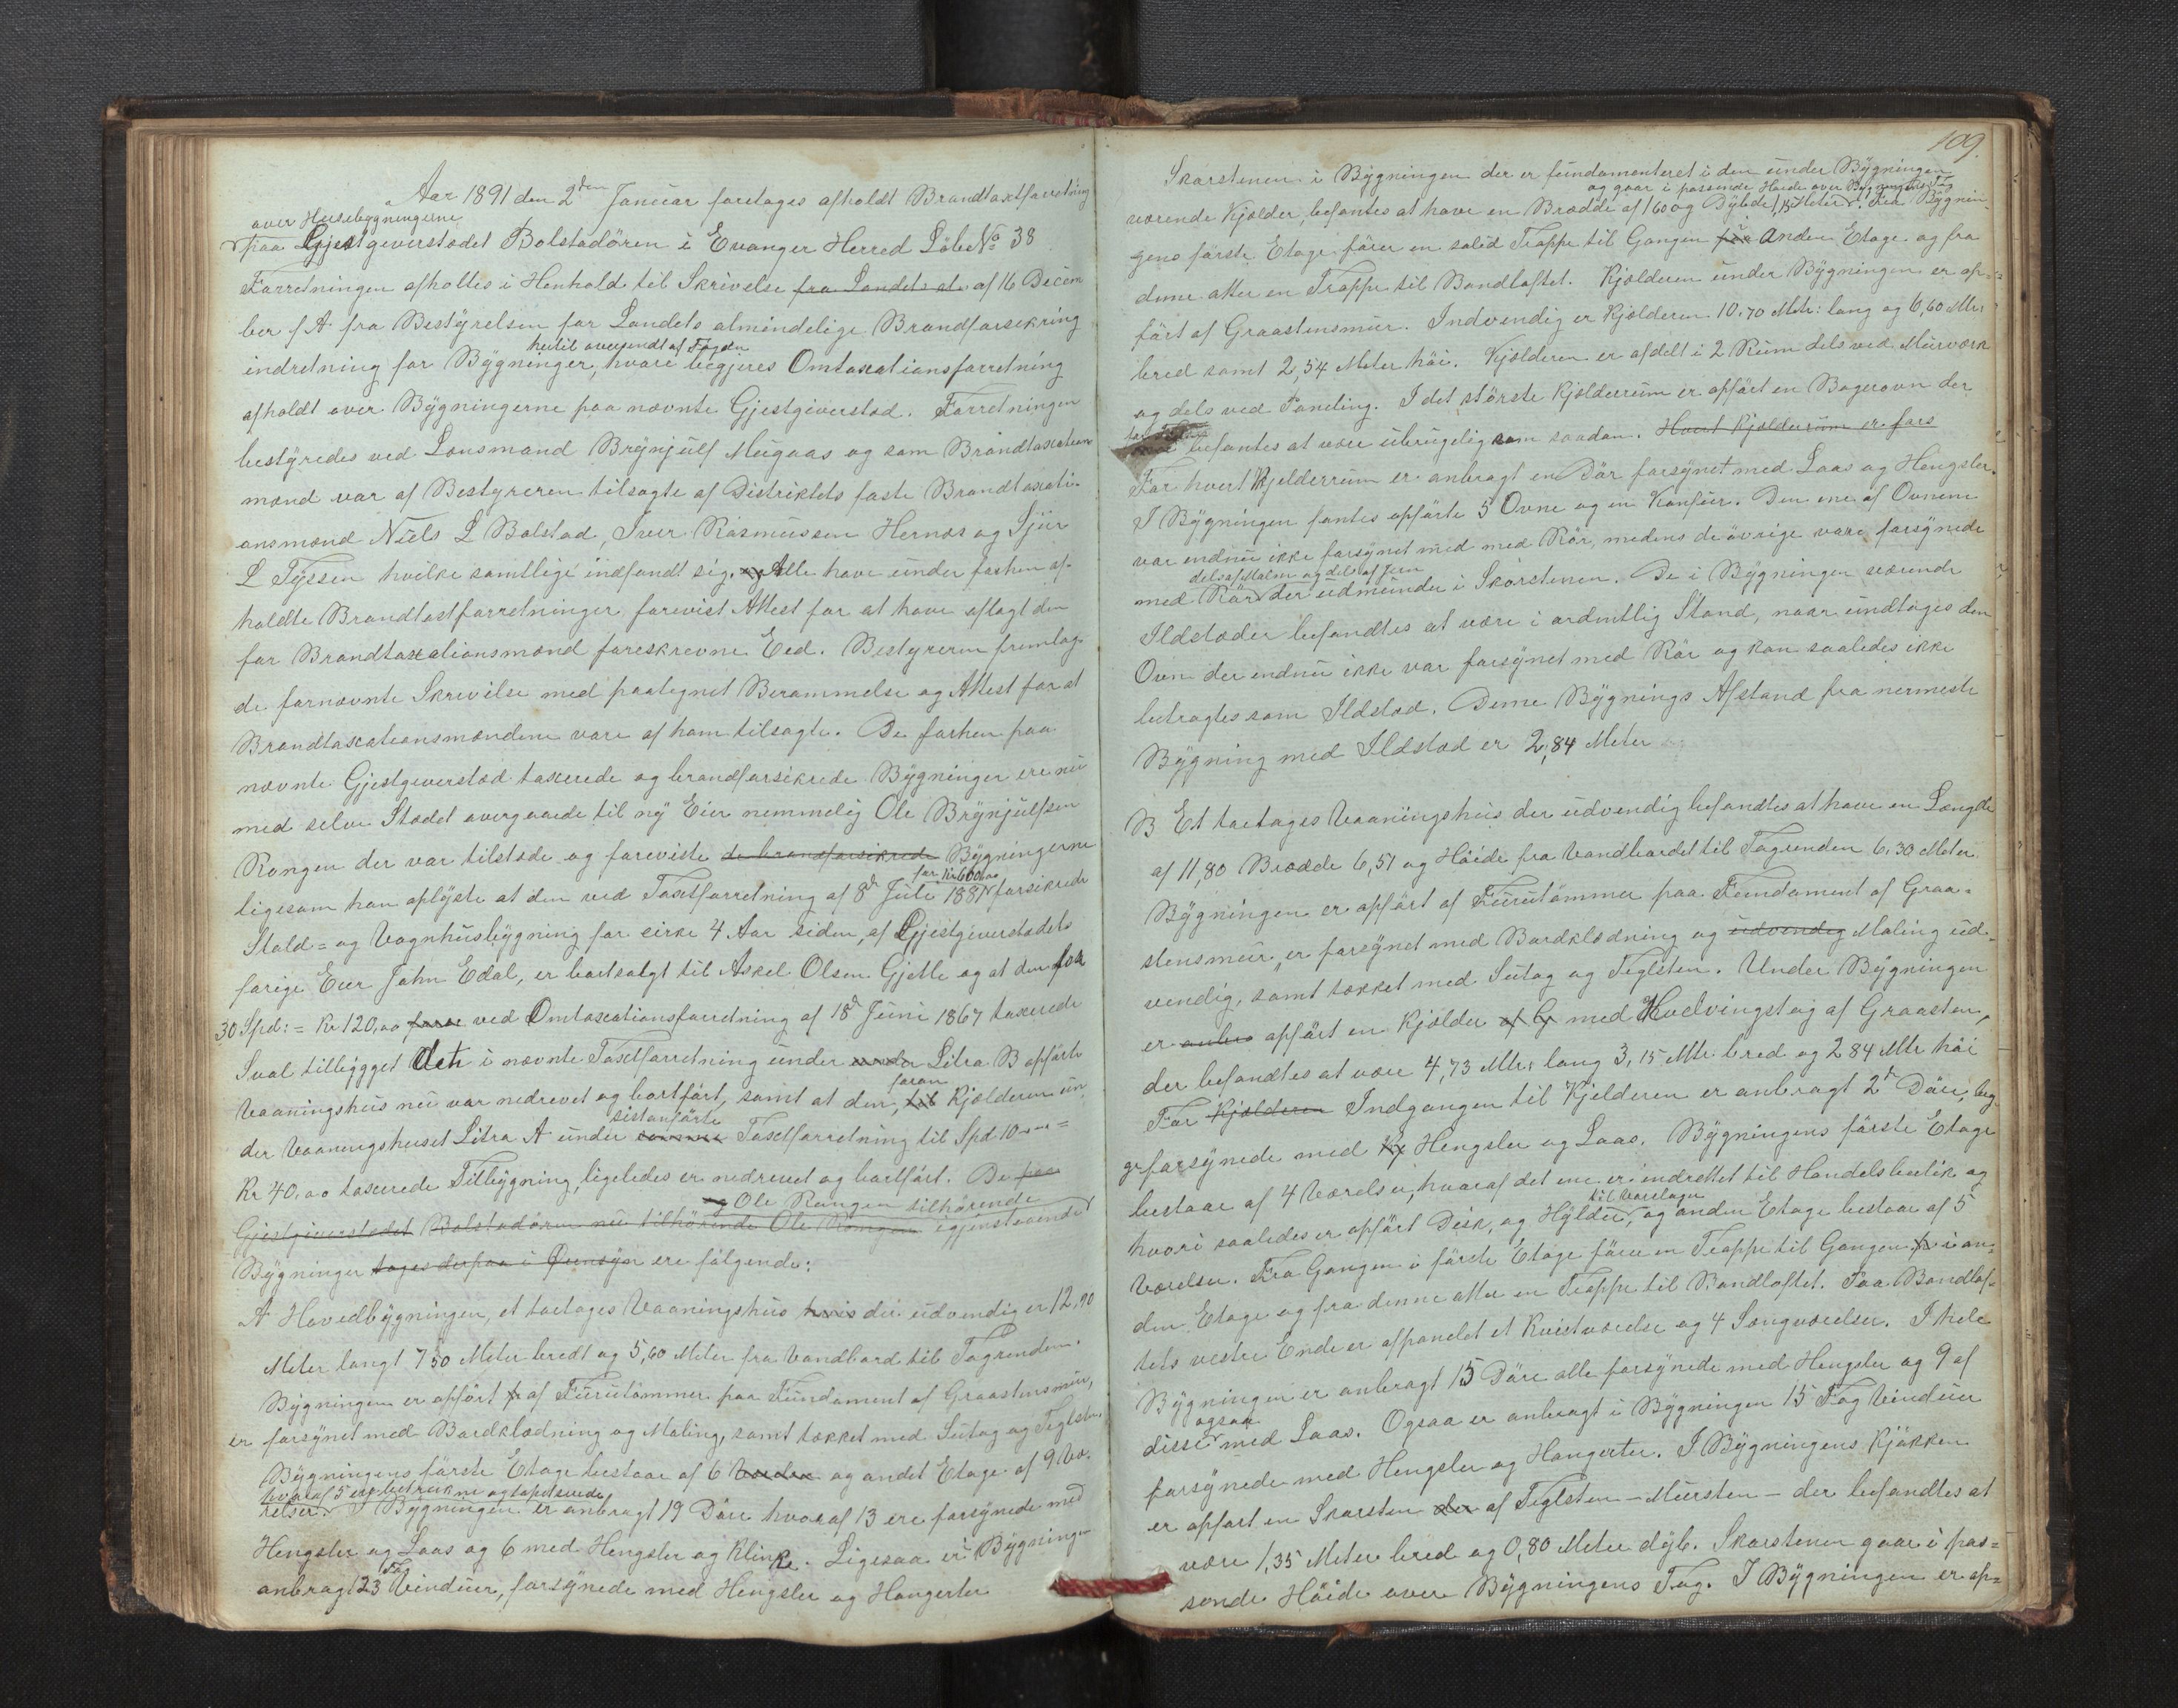 Aar 1891 den 2den Januar foretages afholdt Brandtaxtforretning
over Husebygningerne
paa Gjestgeverstedet Bolstadören i Evanger Herred Löbe No 38
Forretningen afholtes i Henhold til Skrivelse fra Landets alm af 16 Decem
ber f A fra Bestyrelsen for Landets almindelige Brandforsikring
hertil oversendt af Fogden
indretning for Bygninger, hvori begjeres Omtaxationsforretning
afholdt over Bygningerne paa nævnte Gjestgiverstad. Forretningen
bestyredes ved Lensmand Brynjulf Mugaas og som Brandtaxations
mænd var af Bestyreren tilsagte af Distriktets faste Brandtaxati-
onsmænd Niels L Bolstad, Iver Rasmussen Hernes og Sjur
L Tyssen hvilke samtlige indfandt sig. og Alle have under forhen af-
holdte Brandtaxtforretninger forevist Attest for at have aflagt den
for Brandtaxationsmænd foreskrevne Eed. Bestyreren fremlag-
de fornævnte Skrivelse med paategnet Berammelse og Attest for at
Brandtaxationsmændene vare af ham tilsagte. De forhen paa
nævnte Gjestgeverstad taxerede og brandforsikrede Bygninger ere nu
med selve Stedet overgaaede til ny Eier nemmelig Ole Brynjulfsen
Rongen der var tilstede og foreviste de brandforsikrede Bygningerne
for Kr 600,00
ligesom han oplyste at den ved Taxtforretning af 8de Juli 1881 forsikrede
Stald= og Vognhusbygning for cirka 4 Aar siden, af Gjestgiverstedets
forige Eier John Edal, er bortsolgt til Askel Olsen Gjelle og at den for
30 Spd: = Kr 120,00 forn ved Omtaxationsforretning af 18de Juni 1867 taxerede
Sval tilbygget det i nævnte Taxtforretning under under Litra B opförte
Vaaningshus nu var nedrevet og bortfört, samt at den, til Kjælderen un-
foran
der Vaaningshuset Litra A under samme Taxtforretning til Spd 10 =
sistanförte
Kr 40,00 taxerede Tilbygning, ligeledes er nedrevet og bortfört. De paa
og Ole Rongen tilhörende
Gjestgiverstedet Bolstadören nu tilhörende Ole Rongen igjenstaaende
Bygninger tages derpaa i Öiensyn ere fölgende:
A Hovedbygningen, et toetages Vaaningshus hvis der udvendig er 12,90
Meter langt 7 50 Meter bredt og 5,60 Meter fra Vandbord til Tagrenden.
Bygningen er opfört fr af Furutömmer paa Fundament af Graastensmur,
er forsynet med Bordklædning og Maling, samt tækket med Sutag og Teglsten,
Bygningens förste Etage bestaar af 6 Værelser og andet Etage af 9 Væ-
hvoraf 5 ere betrukne og tapetserede
relser I Bygningen er anbragt 19 Döre hvoraf 13 ere forsynede med
Hengsler og Laas og 6 med Hengsler og Klinke. Ligesaa er i Bygningen
Fag
anbragt 23 Vinduer, forsynede med Hengsler og Hangerter
109.
Skorstenen i Bygningen der er fundamenteret i den under Bygningen
og gaar i passende Höide over Bygningens Tag
værende Kjælder, befantes at have en Brædde af 1 60 og Dybde 1,15 Meter. Fra Bygnin-
gens förste Etage förer en solid Trappe til Gangen fra Anden Etage og fra
denne atter en Trappe til Bondloftet. Kjælderen under Bygningen er op=
fört af Graastensmur. Indvendig er Kjælderen 10,70 Mtr: lang og 6,60 Mtr:
bred samt 2,54 Meter höi. Kjælderen er afdelt i 2 Rum dels ved Murværk
og dels ved Paneling. I det störste Kjælderrum er opfört en Bagerovn der
befantes at være ubrugelig som saadan. Hvert Kjælderrum er fors
For hvert Kjelderrum er anbragt en Dör forsynet med Laas og Hengsler.
I Bygningen fantes opförte 5 Ovne og en Komfur. Den ene af Ovnene
var endnu ikke forsynet med med Rör, medens de övrige vare forsynede
dels af Malm og dels af Jern
med Rör der udmunder i Skorstenen. De i Bygningen værende
Ildstæder befandtes at være i ordentlig Stand, naar undtages den
Ovn der endnu ikke var forsynet med Rör og kan saaledes ikke
betragtes som Ildsted. Denne Bygnings Afstand fra nermeste
Bygning med Ildsted er 2,84 Meter
B Et toetages Vaaningshus der udvendig befandtes at have en Længde
af 11,80 Brædde 6,51 og Höide fra Vandbordet til Tagrenden 6,30 Meter
Bygningen er opfört af Furutömmer paa Fundament af Graa=
stensmur, er forsynet med Bordklædning og udvendig Maling ud-
vendig, samt tækket med Sutag og Teglsten. Under Bygningen
er anbra opfört en Kjælder af G med Hvelvingstag af Graasten,
der befandtes at være 4,73 Mtr: lang 3,15 Mtr bred og 2 84 Mtr höi
For Kjælderen Indgangen til Kjelderen er anbragt 2de Döre, beg-
ge forsynede med Hengsler og Laas. Bygningens förste Etage
bestaar af 4 Værelser, hvoraf det ene er indrettet til Handelsbutik og
til Varelager
hvori saaledes er opfört Disk, og Hylder, og anden Etage bestaar af 5
Værelser. Fra Gangen i förste Etage förer en Trappe til Gangen fr i an-
den Etage og fra denne atter en Trappe til Bondloftet. Paa Bondlof-
tets vestre Ende er afpanelet et Kvistværelse og 4 Sengværelser. I hele
Bygningen er anbragt 15 Döre alle forsynede med Hengsler og 9 af
ogsaa
disse med Laas. Ogsaa er anbragt i Bygningen 15 Fag Vinduer
forsynede med Hengsler og Hangerter. I Bygningens Kjökken
er opfört en Skorsten der af Teglsten - Mursten - der befandtes at
være 1,35 Meter bred og 0,80 Meter dyb. Skorstenen gaar i pas=
sende Höide over Bygningens Tag. I Bygningen er op=